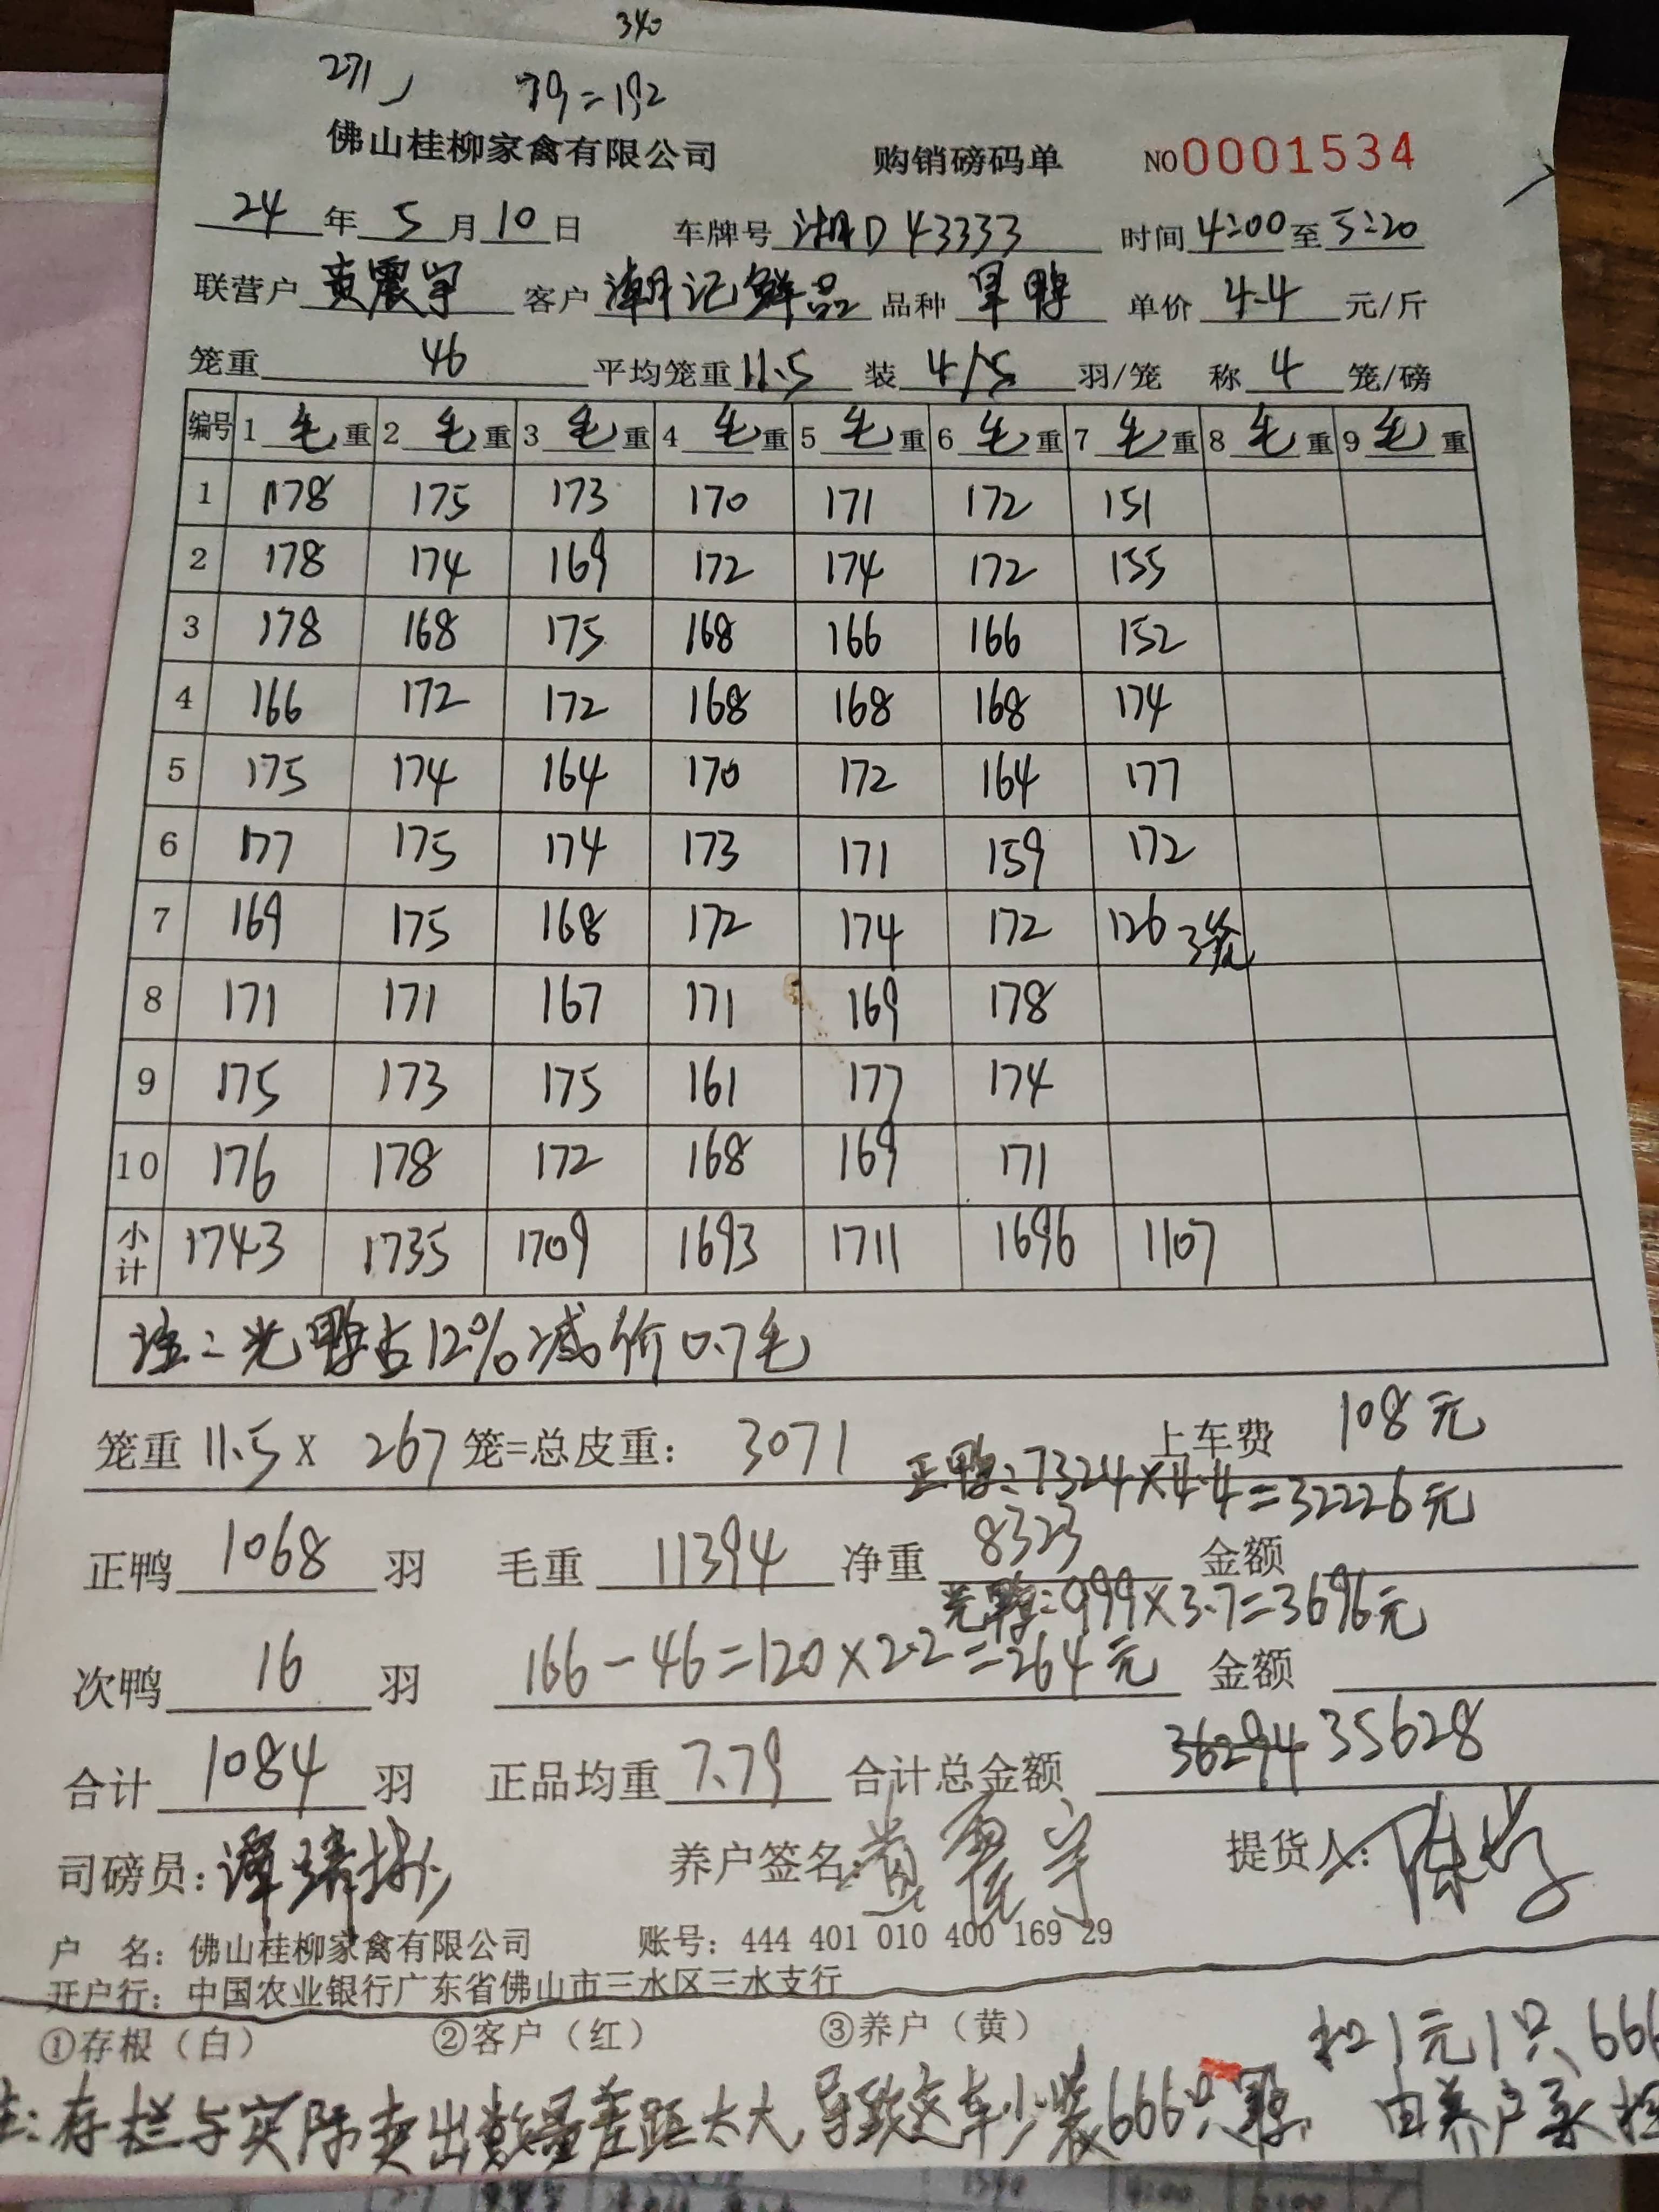 340
271 79=192
佛山桂柳家禽有限公司 购销磅码单 NO 0001534
24年5月10日 车牌号 湘D43333 时间4:00至5:20
联营户 黄震宇 客户 潮记鲜品 品种 旱鸭 单价 4.4 元/斤
笼重 46 平均笼重 11.5 装 4/5 羽/笼 称 4 笼/磅
编号 1 毛重 2 毛重 3 毛重 4 毛重 5 毛重 6 毛重 7 毛重 8 毛重 9 毛重
1 178 175 173 170 171 172 151
2 178 174 169 172 174 172 155
3 178 168 175 168 166 166 152
4 166 172 172 168 168 168 174
5 175 174 164 170 172 164 177
6 177 175 174 173 171 159 172
7 169 175 168 172 174 172 126 3笼
8 171 171 167 171 169 178
9 175 173 175 161 177 174
10 176 178 172 168 169 171
小计 1743 1735 1709 1693 1711 1696 1107
注:光鸭占12%减价0.7毛
笼重 11.5 X 267 笼=总皮重: 3071 上车费 108元
正鸭:7324×4.4=32226元
正鸭 1068 羽 毛重 11394 净重 8323 金额
光鸭:999×3.7=3696元
次鸭 16 羽 166-46=120×2.2=264元 金额
合计 1084 羽 正品均重 7.79 合计总金额 36294 35628
司磅员: 养户签名:黄震宇 提货人:
户 名: 佛山桂柳家禽有限公司 账号: 444 401 010 400 169 29
开户行: 中国农业银行广东省佛山市三水区三水支行
①存根(白) ②客户(红) ③养户(黄)
扣1元1只 666
注:存栏与实际卖出数量差距太大,导致这车少装666只鸭 由养户承担